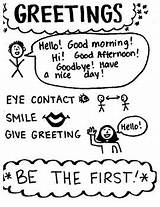 GREETINGS
Hello! Good morning!
Hi! Good Afternoon!
Goodbye! Have
a nice day!
EYE CONTACT
SMILE
GIVE GREETING
Hello!
*BE THE FIRST!*